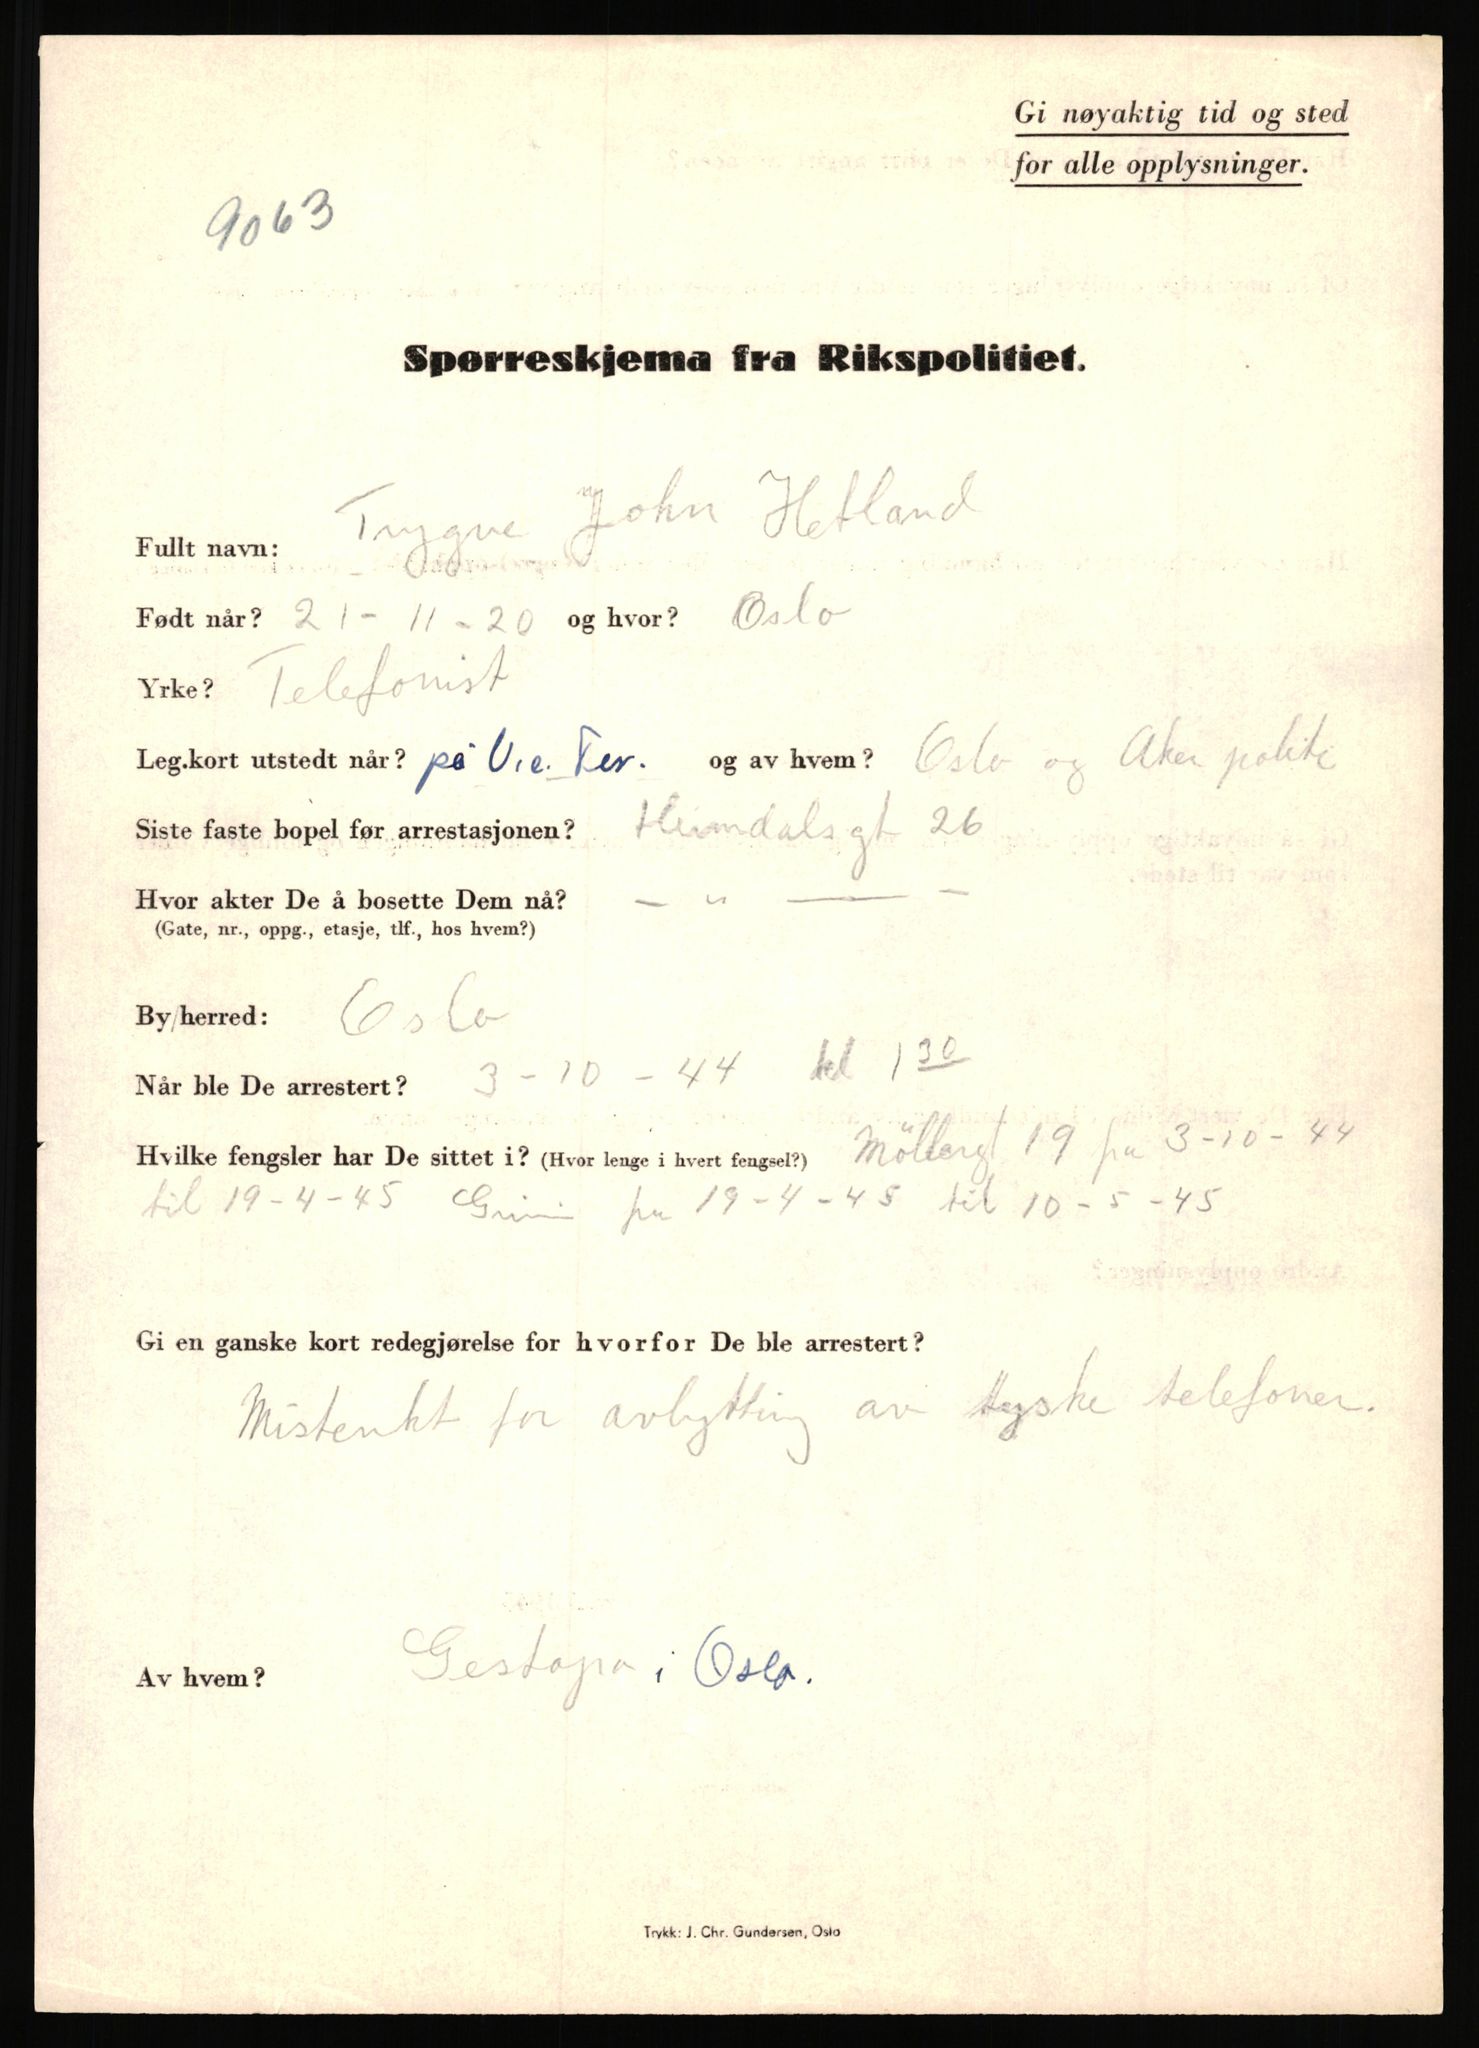 Gi nøyaktig tid og sted
for alle opplysninger.
9063
Spørreskjema fra Rikspolitiet.
Fullt navn: Trygve John Hetland
Født når? 21-11-20 og hvor? Oslo
Yrke? Telefonist
Leg.kort utstedt når? på og av hvem? Oslo og Aker politi
Siste faste bopel før arrestasjonen? Heimdalsgt 26
Hvor akter De å bosette Dem nå? — " — —
(Gate, nr., oppg., etasje, tlf., hos hvem?)
By/herred: Oslo
Når ble De arrestert? 3-10-44 kl 1 30
Hvilke fengsler har De sittet i? (Hvor lenge i hvert fengsel?) Möllergt 19 fra 3-10-44
til 19-4-45 Grini fra 19-4-45 til 10-5-45
Gi en ganske kort redegjørelse for hvorfor De ble arrestert?
Mistenkt for avlytting av tyske telefoner.
Av hvem? Gestapo i Oslo.
Trykk: J. Chr. Gundersen, Oslo